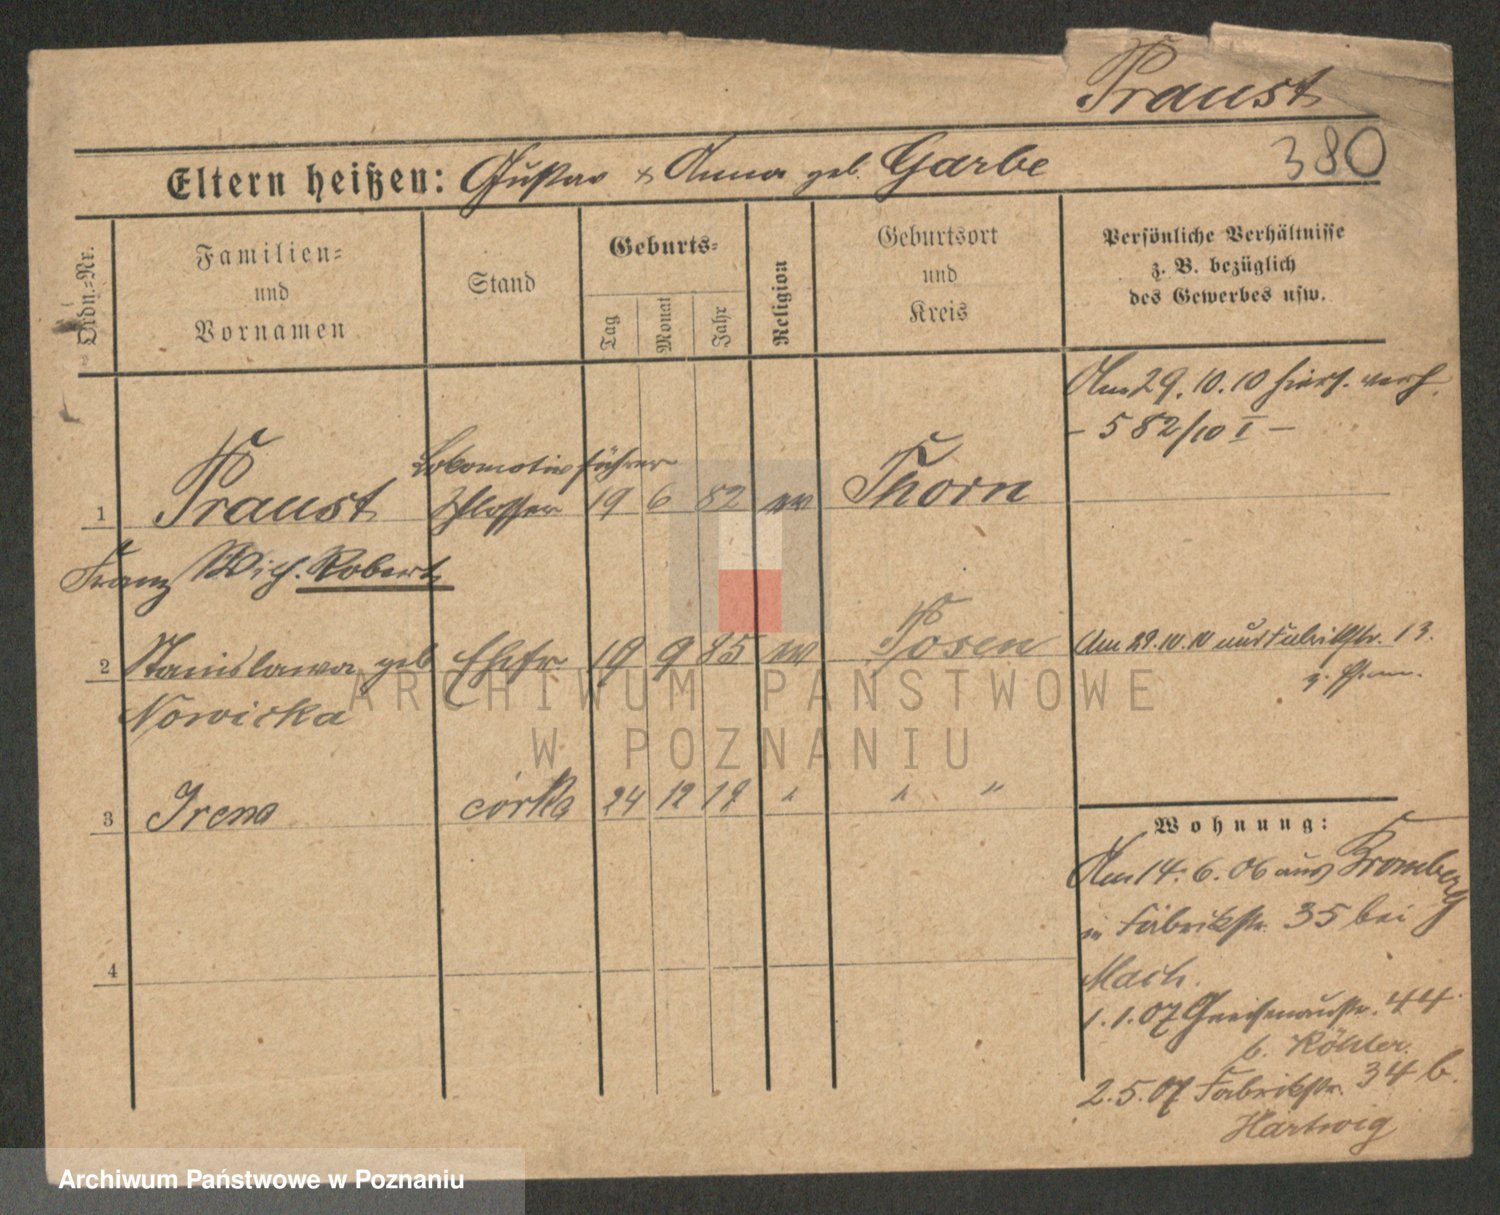 Praust
380
Eltern heißen: Gustav & Anna geb. Garbe
Ordn.-Nr.
Familien-
und
Vornamen
Stand
Geburts-
Tag
Monat
Jahr
Religion
Geburtsort
und
Kreis
Persönliche Verhältnisse
z. B. bezüglich
des Gewerbes usw.
Am 29.10.10 hiers. verh.
- 582/10 I -
Lokomotivführer
1 Praust Schlosser 19 6 82 Thorn
Franz Wich. Robert
2 Stanislawa geb Ehefr 19 9 85 Posen
Nowicka
Am 29.10.10 aus Fabrikstr. 13.
z. Ehem.
3 Irena córka 24 12 19 " " "
4
Wohnung:
Am 14.6.06 aus Bromberg
in Fabrikstr. 35 bei
Mach.
1.1.07 Gneisenaustr. 44
b. Köhler.
2.5.07 Fabrikstr. 34 b.
Hartwig
ARCHIWUM PAŃSTWOWE
W POZNANIU
Archiwum Państwowe w Poznaniu